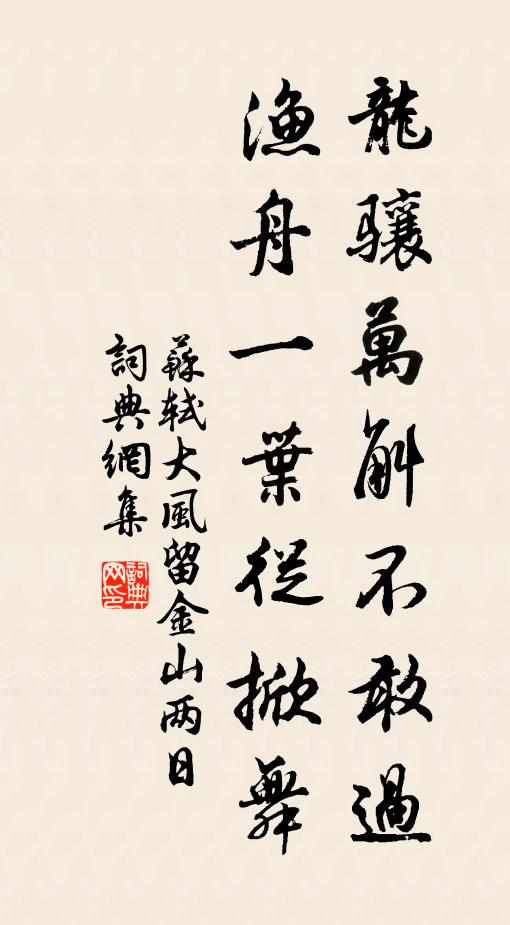 龍驤萬斛不敢過
漁舟一葉從掀舞
蘇軾大風留金山两日
詞典網集
詞典网印